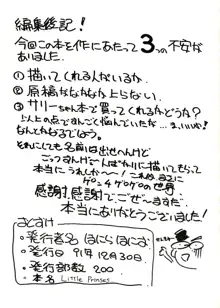 編集後記!
今回この本を作にあたって3つの不安が
ありました.
① 描いてくれる人がいるか.
② 原稿がなかなか上らない.
③ サリーちゃん本で買ってくれるかどうか?
以上の点ですごく悩んでいたな…まっいいか!
なんとかなるでしょう.
それにしても名前は出せへんけど
ごっつすんげーピーばかりに描いてもらって
本当にうれしか〜!これぁまさに
ゲロゲロゲロの世界
感謝!感謝でござーますだ.
本当にありがとうございました!
おとすけ
・発行者名 ほにらほにお
・発行日 91年12月30日
・発行部数 200
・本名 Little Prinses